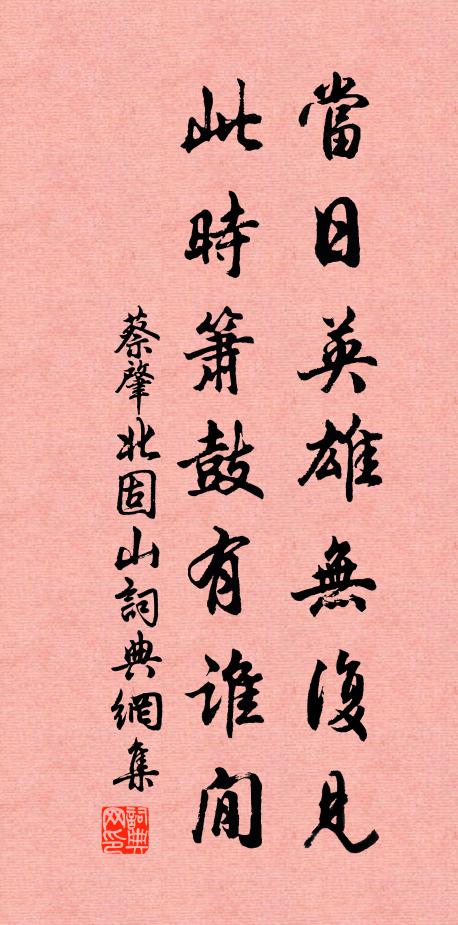 當日英雄無復見
此時簫鼓有誰聞
蔡肇北固山詞典網集
詞典網印